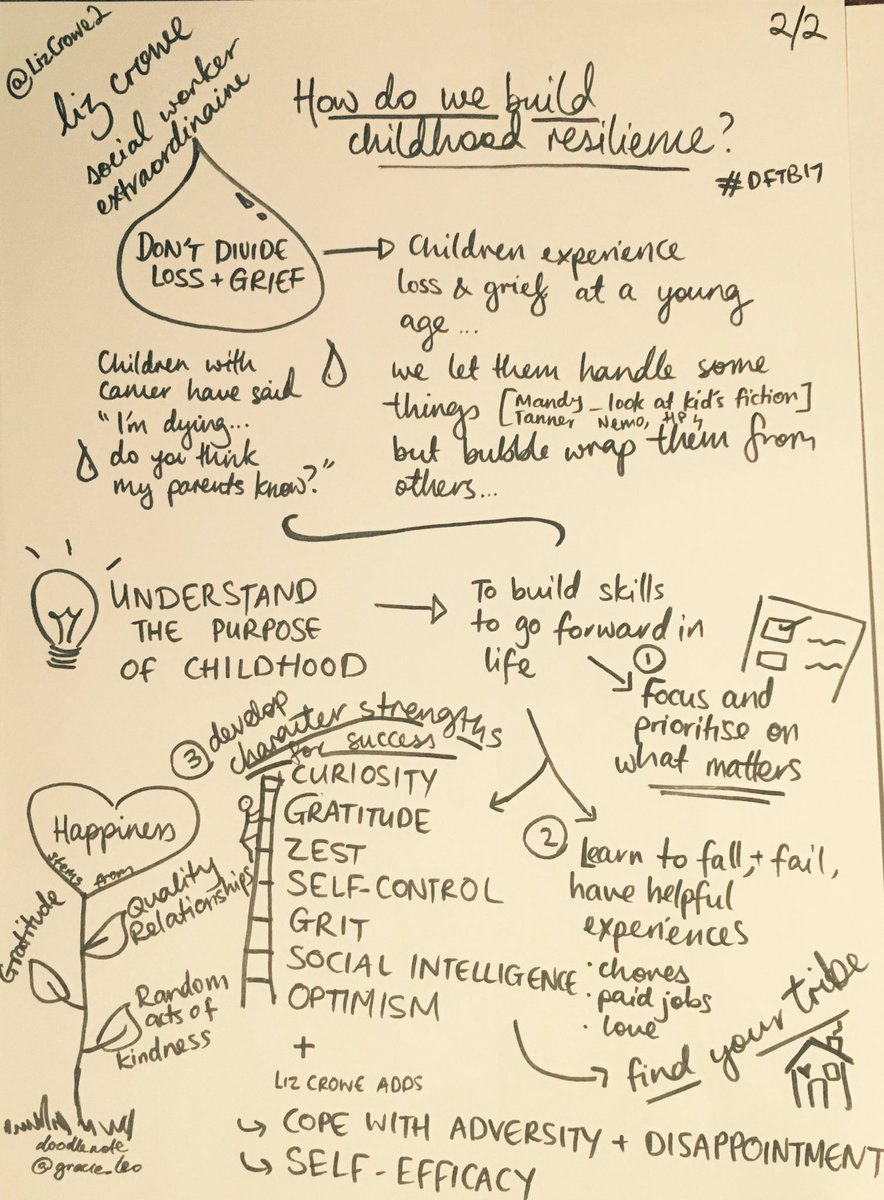 @LizCrowe2
liz crowe
social worker
extraordinaire
2/2
How do we build
childhood resilience?
#DFTB17
DON'T DIVIDE
LOSS + GRIEF
Children experience
loss & grief at a young
age...
we let them handle some
things [Mandy - look at kid's fiction]
Tanner Nemo, HP
but bubble wrap them from
others...
Children with
cancer have said
"I'm dying...
do you think
my parents know?"
UNDERSTAND
THE PURPOSE
OF CHILDHOOD
To build skills
to go forward in
life
①
Focus and
prioritise on
what matters
②
Learn to fall, + fail,
have helpful
experiences
· chores
· paid jobs
· love
find your tribe
③ develop
character strengths
for success
CURIOSITY
GRATITUDE
ZEST
SELF-CONTROL
GRIT
SOCIAL INTELLIGENCE
OPTIMISM
+
LIZ CROWE ADDS
↳ COPE WITH ADVERSITY + DISAPPOINTMENT
↳ SELF-EFFICACY
Happiness
stems from
Gratitude
Quality
Relationships
Random
acts of
kindness
doodlenote
@gracie_leo